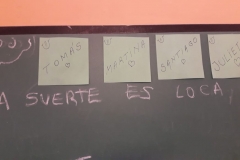 TOMÁS
MARTINA
SANTIAGO
JULIE
A SUERTE ES LOCA,